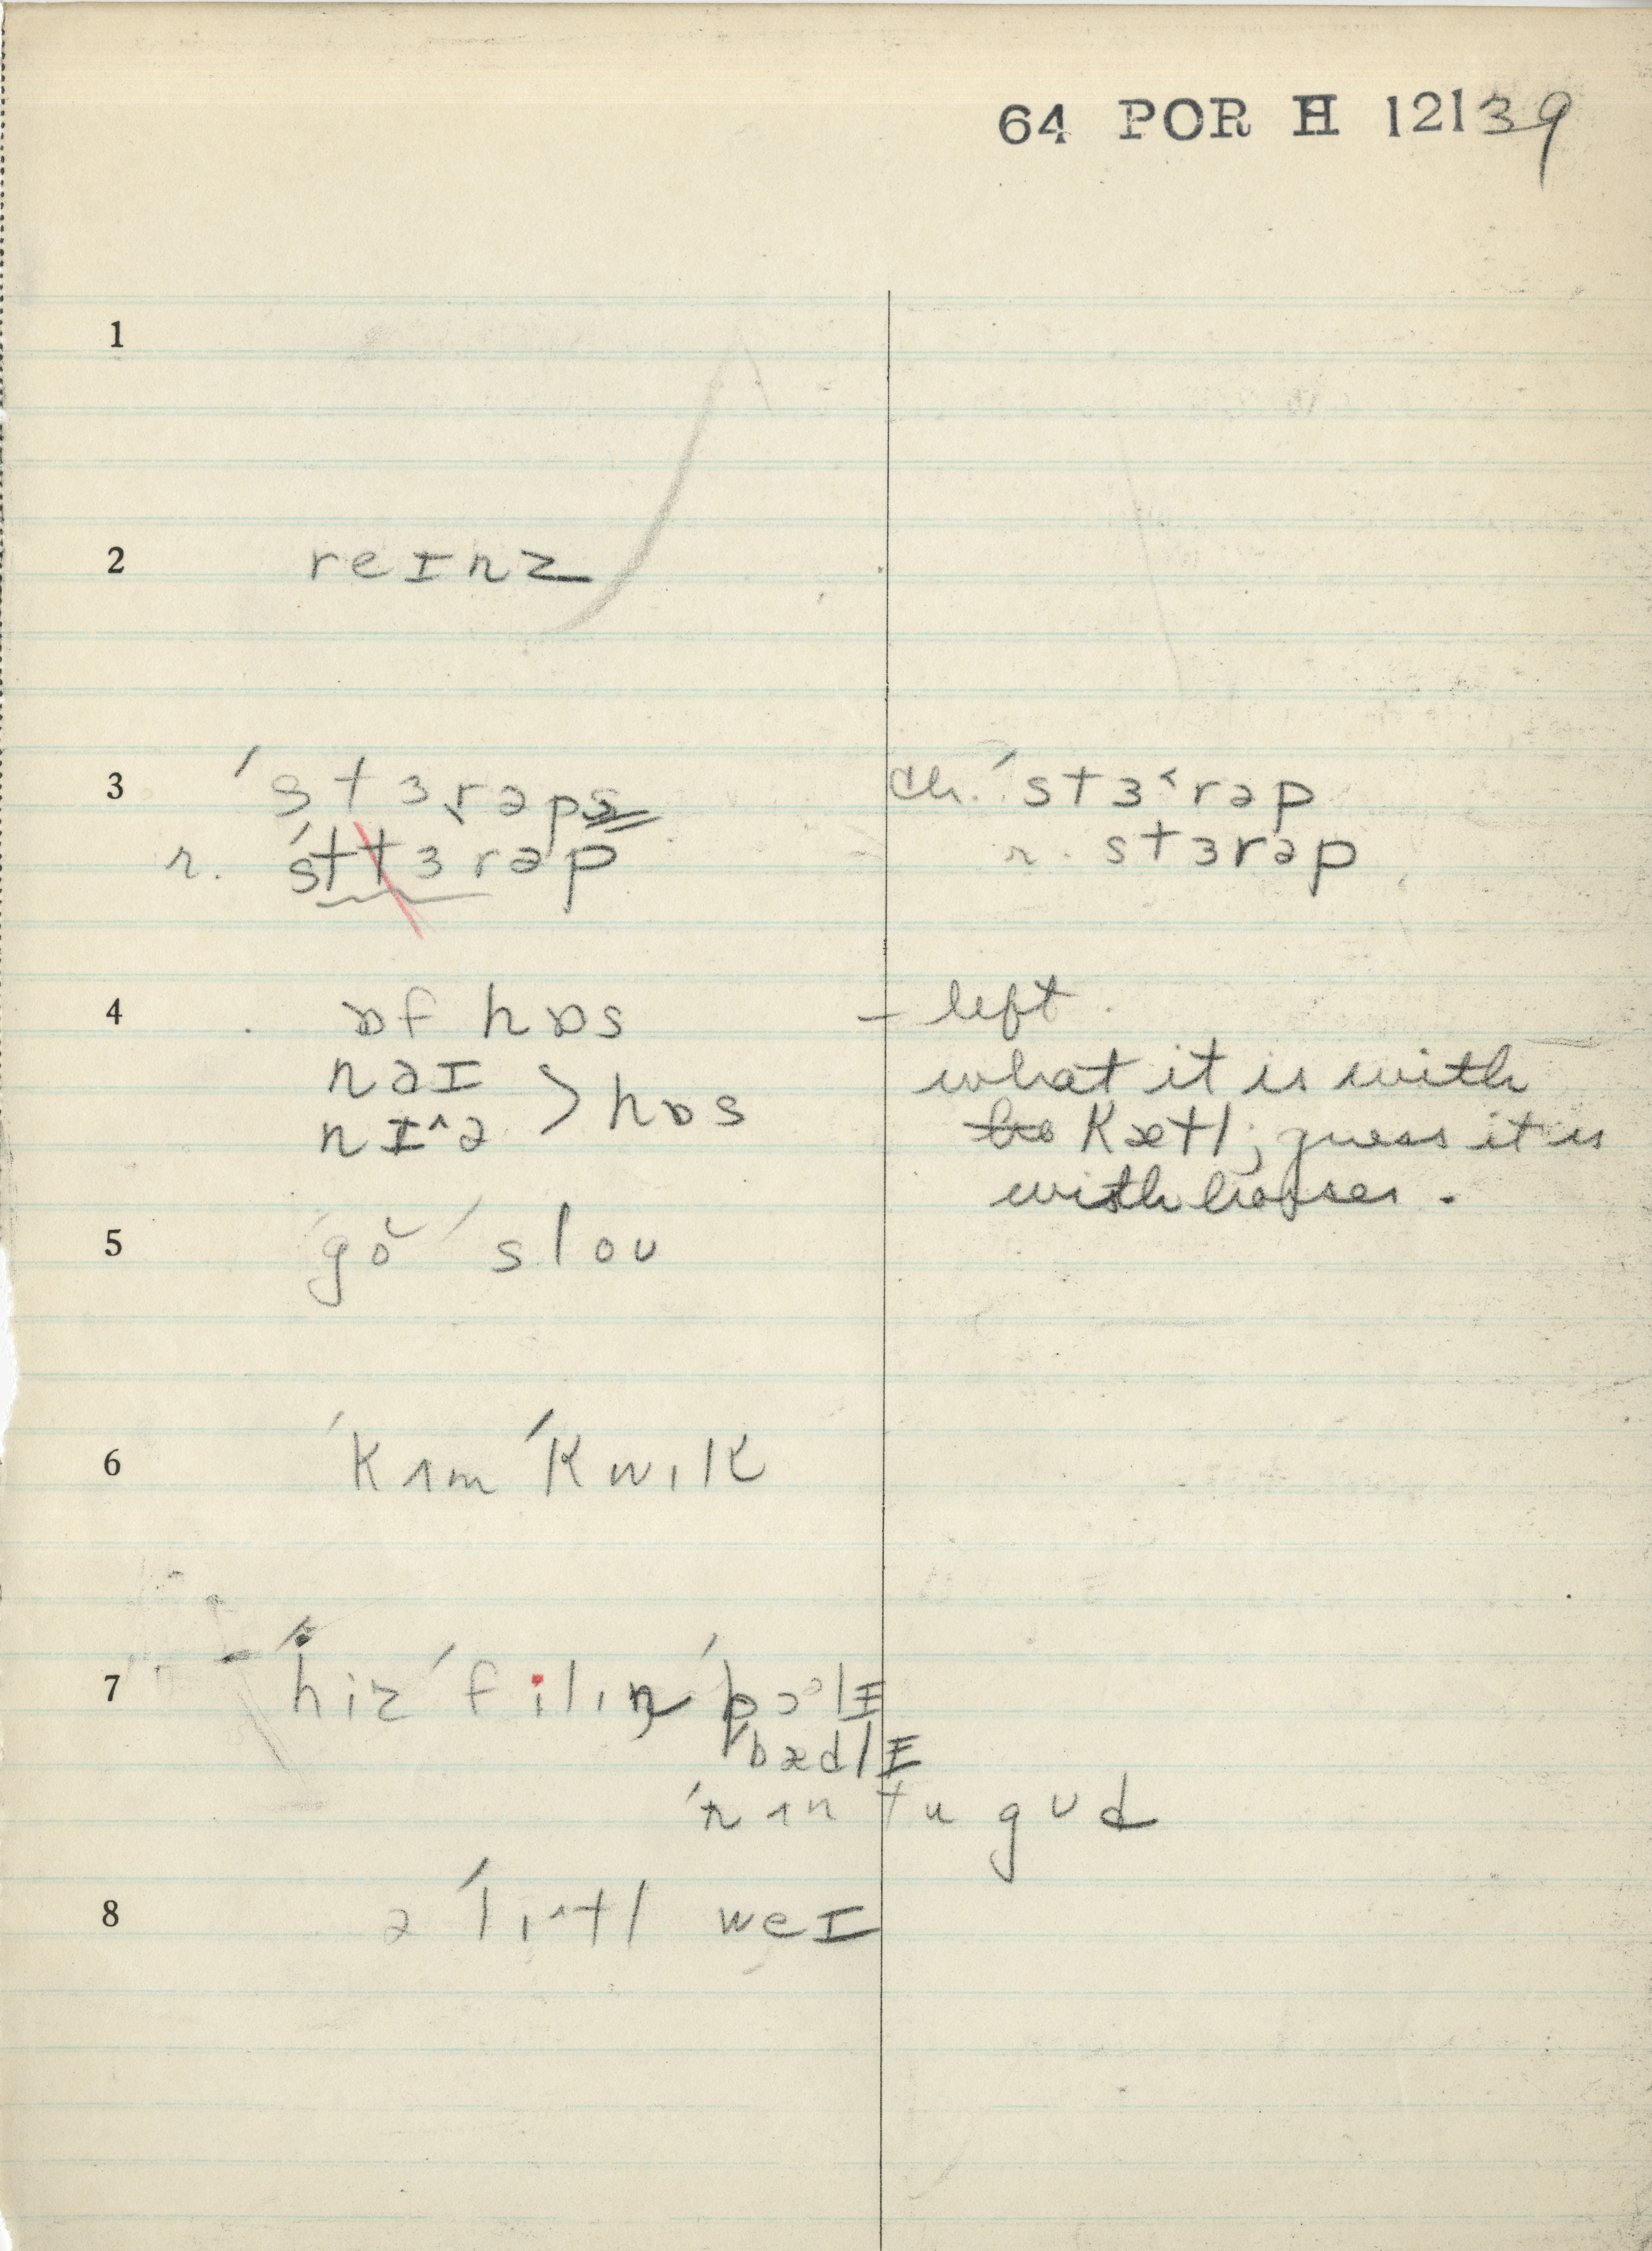 64 POR H 12139
1
2 reɪnz
3 ˈstɜrəps
ch. ˈstɜ˂rəp
r. ˈsttɜrəp
r. stɜrəp
4 ɒf hɒs
– left.
naɪ
nɪ^ə > hɒs
what it is with
kætl; guess it is
with horses.
5 ˈgŏ ˈsloʊ
6 ˈkʌm ˈkwɪk
7 ˈhiz ˈfilɪŋ ˈpɔᵊlɪ
ˈbædlɪ
ˈnʌn tu gʊd
8 ə ˈlɪ^tl weɪ